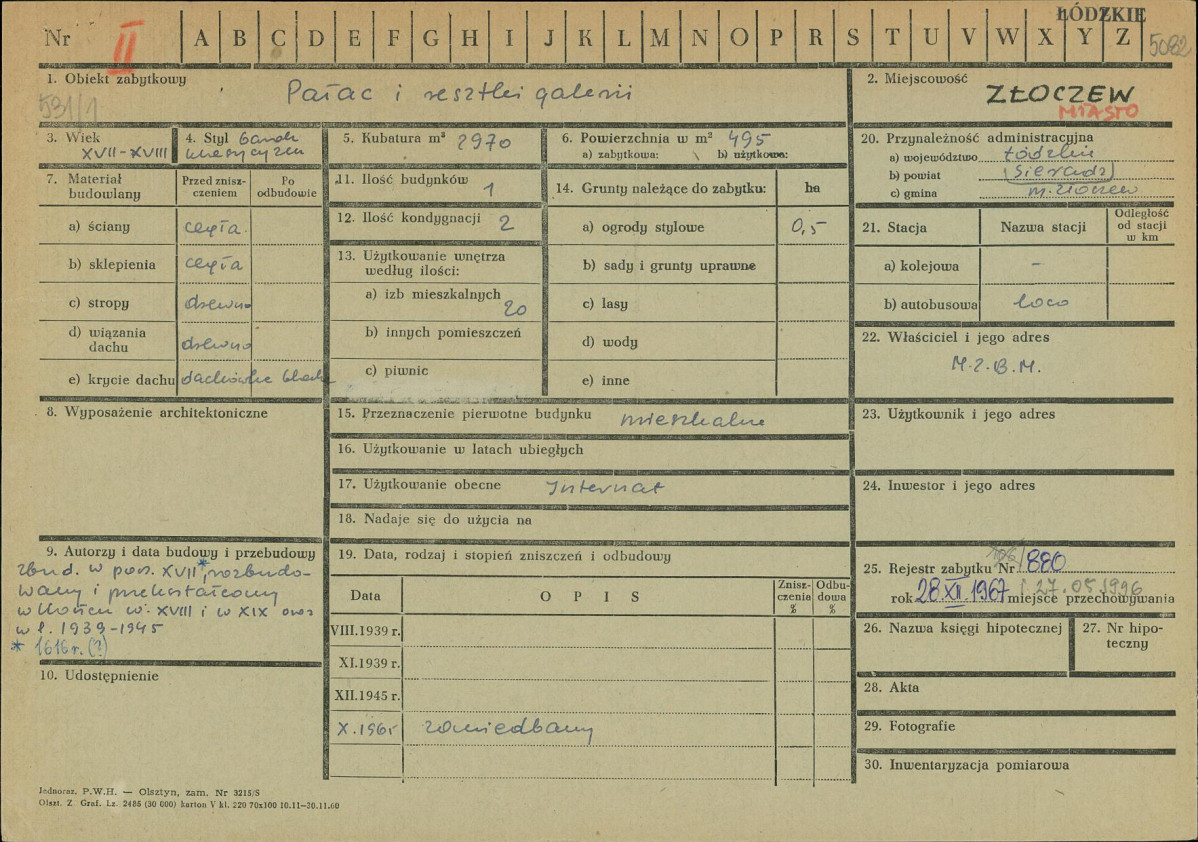 ŁÓDZKIE
Nr II A B C D E F G H I J K L M N O P R S T U V W X Y Z 5082
1. Obiekt zabytkowy Pałac i resztki galerii
531/1
2. Miejscowość ZŁOCZEW
MIASTO
3. Wiek XVII-XVIII
4. Styl barok
klasycyzm
5. Kubatura m³ 2970
6. Powierzchnia w m² 495
a) zabytkowa: b) użytkowa:
7. Materiał budowlany
Przed znisz-
czeniem
Po
odbudowie
a) ściany cegła
b) sklepienia cegła
c) stropy drewno
d) wiązania
dachu drewno
e) krycie dachu dachówka blacha
8. Wyposażenie architektoniczne
9. Autorzy i data budowy i przebudowy
zbud. w pocz. XVII*, rozbudo-
wany i przekształcony
w końcu w. XVIII i w XIX oraz
w l. 1939-1945
* 1616 r. (?)
10. Udostępnienie
11. Ilość budynków 1
12. Ilość kondygnacji 2
13. Użytkowanie wnętrza
według ilości:
a) izb mieszkalnych 20
b) innych pomieszczeń
c) piwnic
14. Grunty należące do zabytku: ha
a) ogrody stylowe 0,5
b) sady i grunty uprawne
c) lasy
d) wody
e) inne
15. Przeznaczenie pierwotne budynku mieszkalne
16. Użytkowanie w latach ubiegłych
17. Użytkowanie obecne Internat
18. Nadaje się do użycia na
19. Data, rodzaj i stopień zniszczeń i odbudowy
Data OPIS Znisz-
czenia
% Odbu-
dowa
%
VIII.1939 r.
XI.1939 r.
XII.1945 r.
X.1961 zaniedbany
20. Przynależność administracyjna
a) województwo łódzkie
b) powiat (Sieradz)
c) gmina m. Złoczew
21. Stacja Nazwa stacji Odległość
od stacji
w km
a) kolejowa -
b) autobusowa loco
22. Właściciel i jego adres
M.Z.B.M.
23. Użytkownik i jego adres
24. Inwestor i jego adres
25. Rejestr zabytku Nr 880
rok 28.XII.1967 i 27.05.1996 miejsce przechowywania
26. Nazwa księgi hipotecznej
27. Nr hipo-
teczny
28. Akta
29. Fotografie
30. Inwentaryzacja pomiarowa
Jednoraz. P.W.H. — Olsztyn, zam. Nr 3215/S
Olszt. Z. Graf. Lz. 2485 (30 000) karton V kl. 220 70x100 10.11-30.11.60